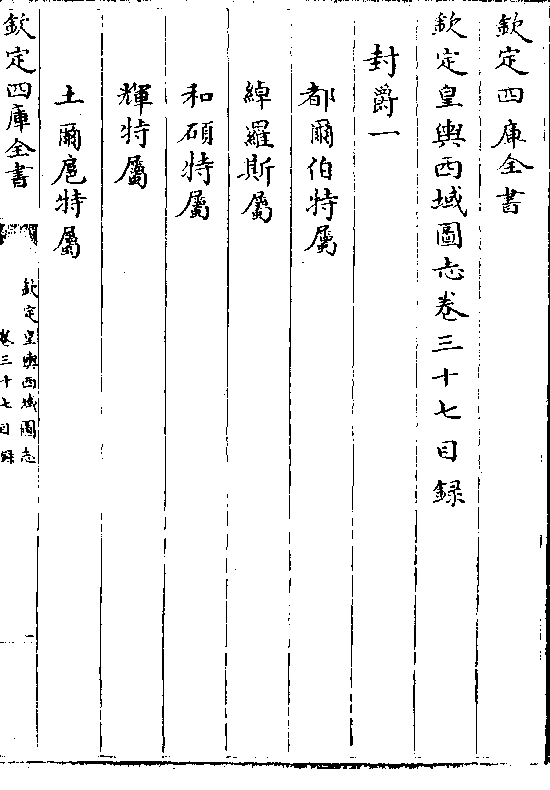 欽定四庫全書
欽定皇輿西域圖志卷三十七目録
封爵一
都爾伯特屬
綽羅斯屬
和碩特屬
輝特屬
土爾扈特屬
欽定四庫全書
欽定皇輿西域圖志
卷三十七目録